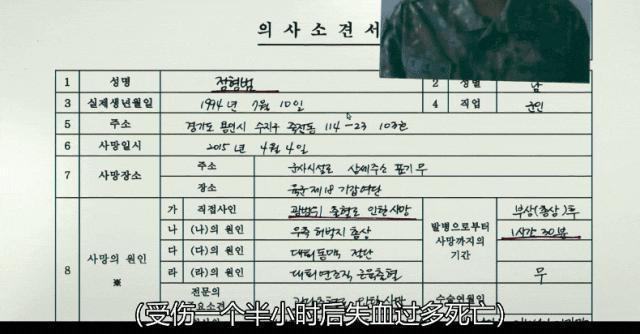 의 사 소 견 서
1 성명 정형범 2 성별 남
3 실제생년월일 1994년 7월 10일 4 직업 군인
5 주소 경기도 용인시 수지구 죽전동 114-23 103호
6 사망일시 2015년 4월 4일
7 사망장소 주소 군사시설로 상세주소 표기 무
장소 육군 제18 기갑여단
8 사망의 원인 ※ 가 직접사인 광범위 출혈로 인한 사망 발병으로부터 사망까지의 기간 부상(총상) 후 1시간 30분
나 (나)의 원인 우측 허벅지 총상
다 (다)의 원인 대퇴동맥 절단
라 (라)의 원인 대퇴 연조직, 근육출혈 무
전문의 수술연월일
(受伤一个半小时后失血过多死亡)